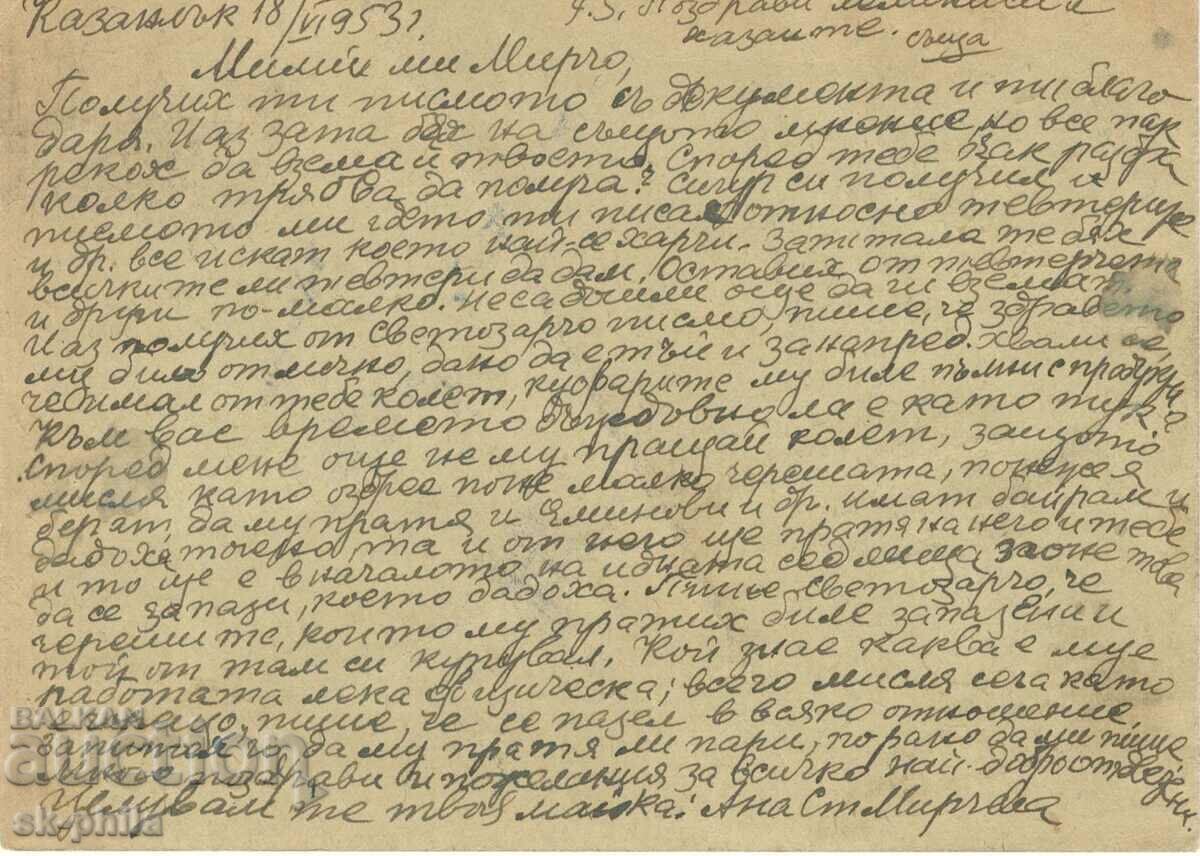 Казанлък 18/VI 1953 г.
P.S. Поздрави
хазаите. съща
Милий ми Мирчо,
Получих ти писмото с документа и ти благо
даря. И аз за това бях на същото мнение, но все пак
рекох да взема и твоето. Според тебе пак
колко трябва да помуча? Сигур си получил и
писмото ми гдето ти писах относно тевтерите
и др. все искат което най-се харчи. Запитала те бях
всичките ли тевтери да дам. Оставих от тевтерчета
и други по-малко. Не са дошли още да ги вземат.
И аз получих от Светозарчо писмо, пише, че здравето
ми било отлично, дано да е тъй и занапред. Хвали се,
че имал от тебе колет, куфарите му биле пълни с
Към вас времето дъждовно ли е като тука
според мене още не му пращай колет, защото
мисля като обера поне малко черешата, понеже я
берат, да му пратя и Еминови и др. имат байрам и
дадоха точено, та и от него ще пратя на него и тебе
и то ще е в началото на идната седмица
да се запази, което дадоха. Пише Светозарчо, че
черешите, които му пратих биле запазени и
той от там си купувал. Кой знае каква е
работата лека физическа; всего мисля сега като
пише, че се пазел в всяко отношение,
запитах го да му пратя ли пари, по рано да ми пише
много поздрави и пожелания за всичко най-добро от
Целувам те твоя майка: Ана Ст Мирчева
BALKAN
auction
sk-phila